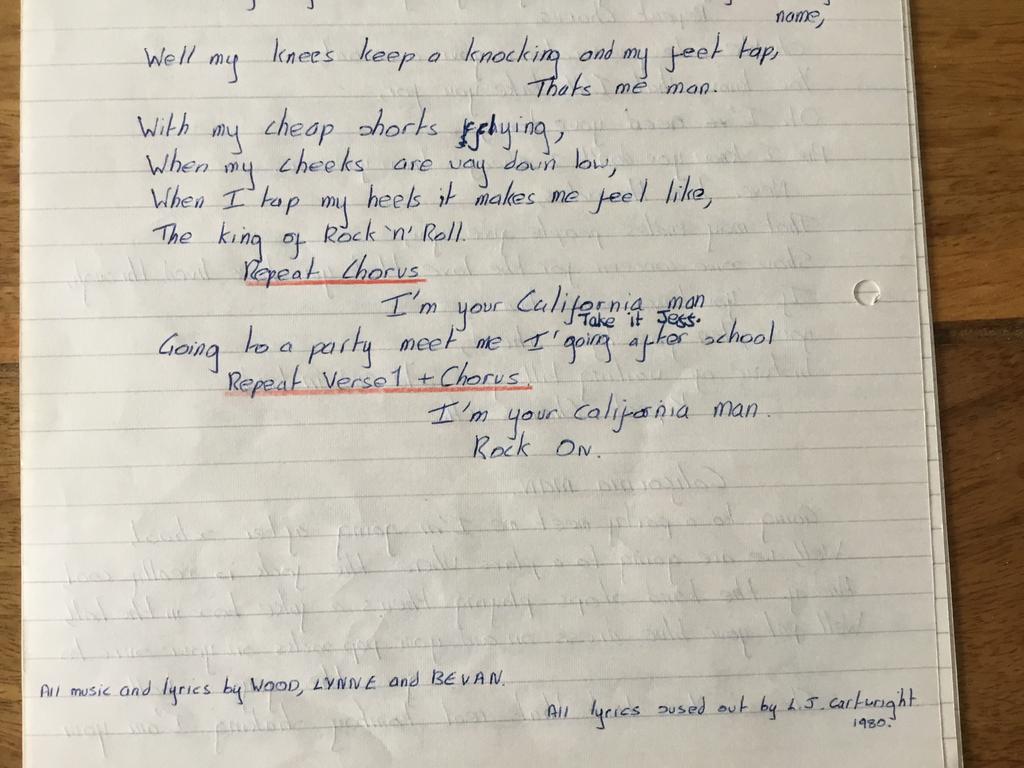 name,
Well my knees keep a knocking and my feet tap,
Thats me man.
With my cheap shorts flying,
When my cheeks are way down low,
When I tap my heels it makes me feel like,
The king of Rock 'n' Roll.
Repeat Chorus
I'm your California man
Take it Jess.
Going to a party meet me I'going after school
Repeat Verse 1 + Chorus
I'm your California man.
Rock On.
All music and lyrics by WOOD, LYNNE and BEVAN.
All lyrics sused out by L.J. Cartwright
1980.